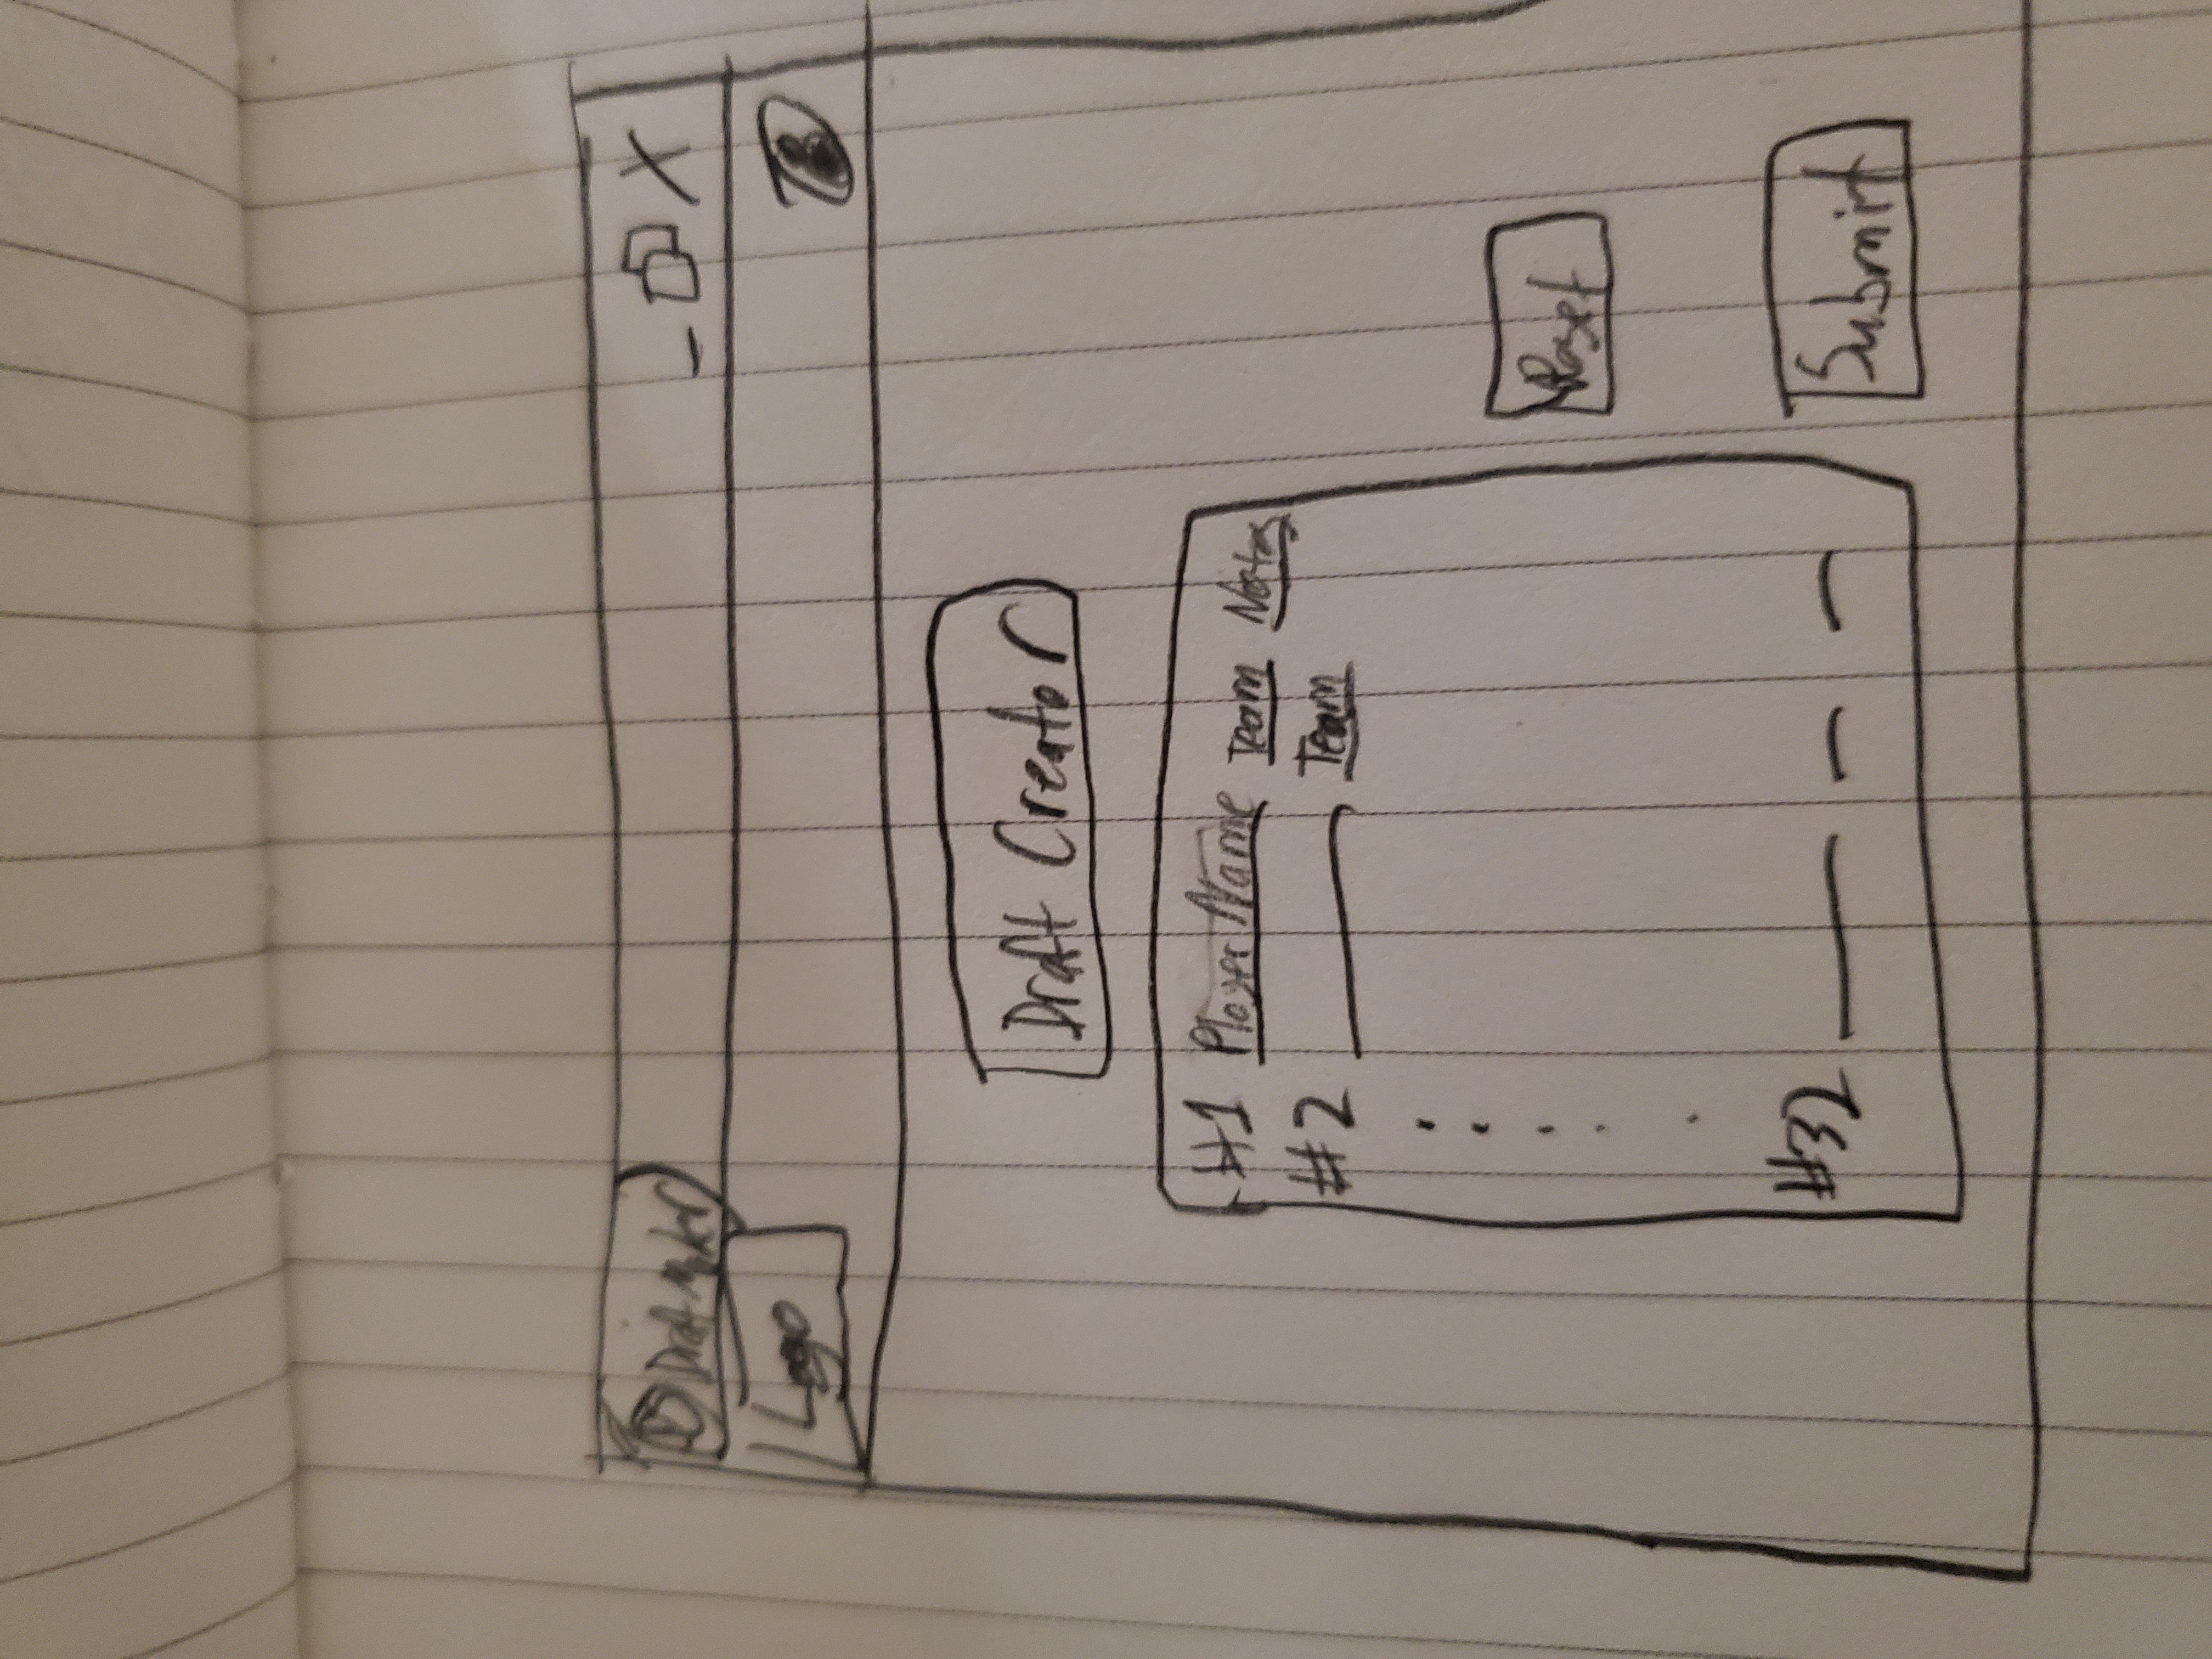 Draft Maker
Logo
Draft Creator
#1 Player Name Team Notes
#2 Team
#32
Reset
Submit